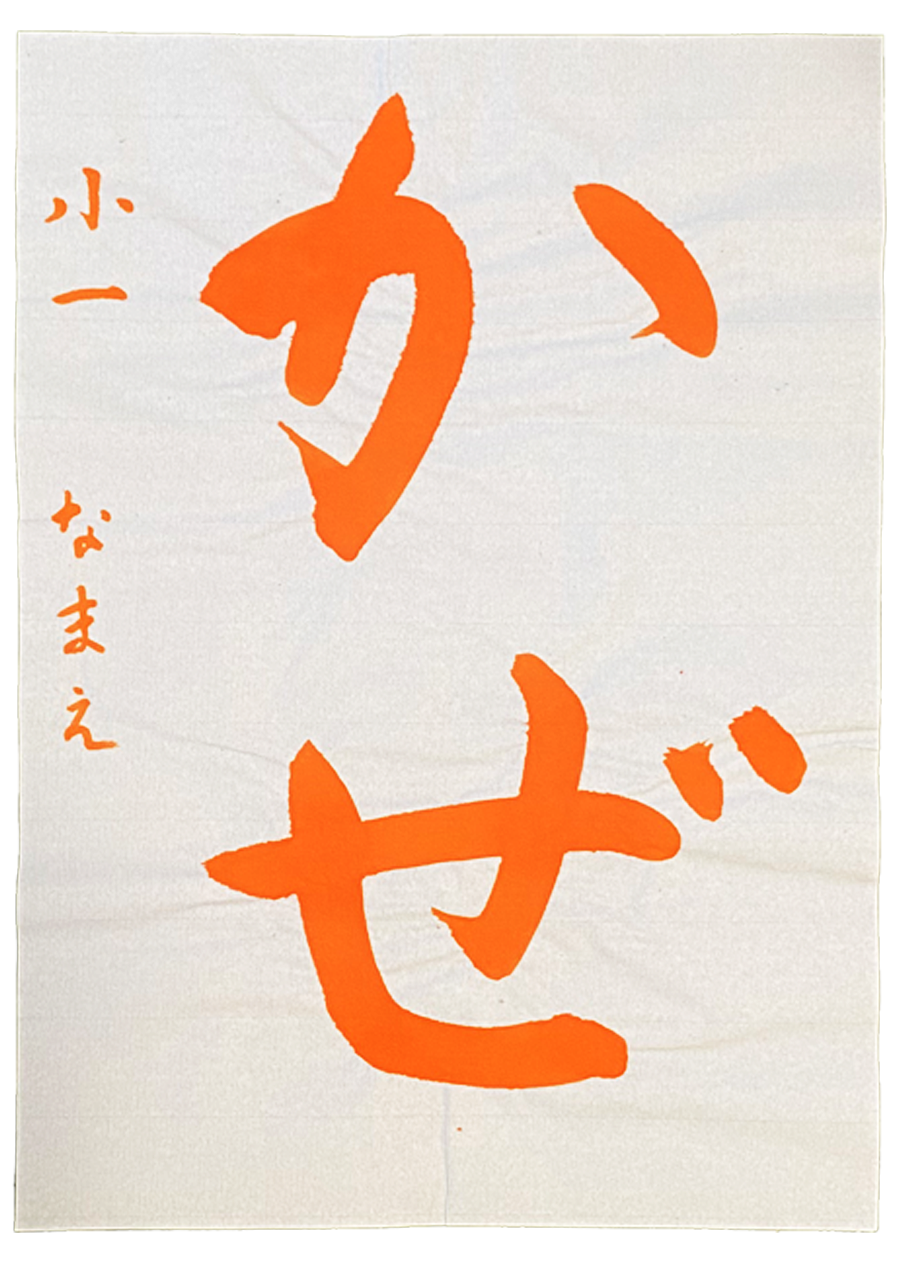 かぜ
小一 なまえ